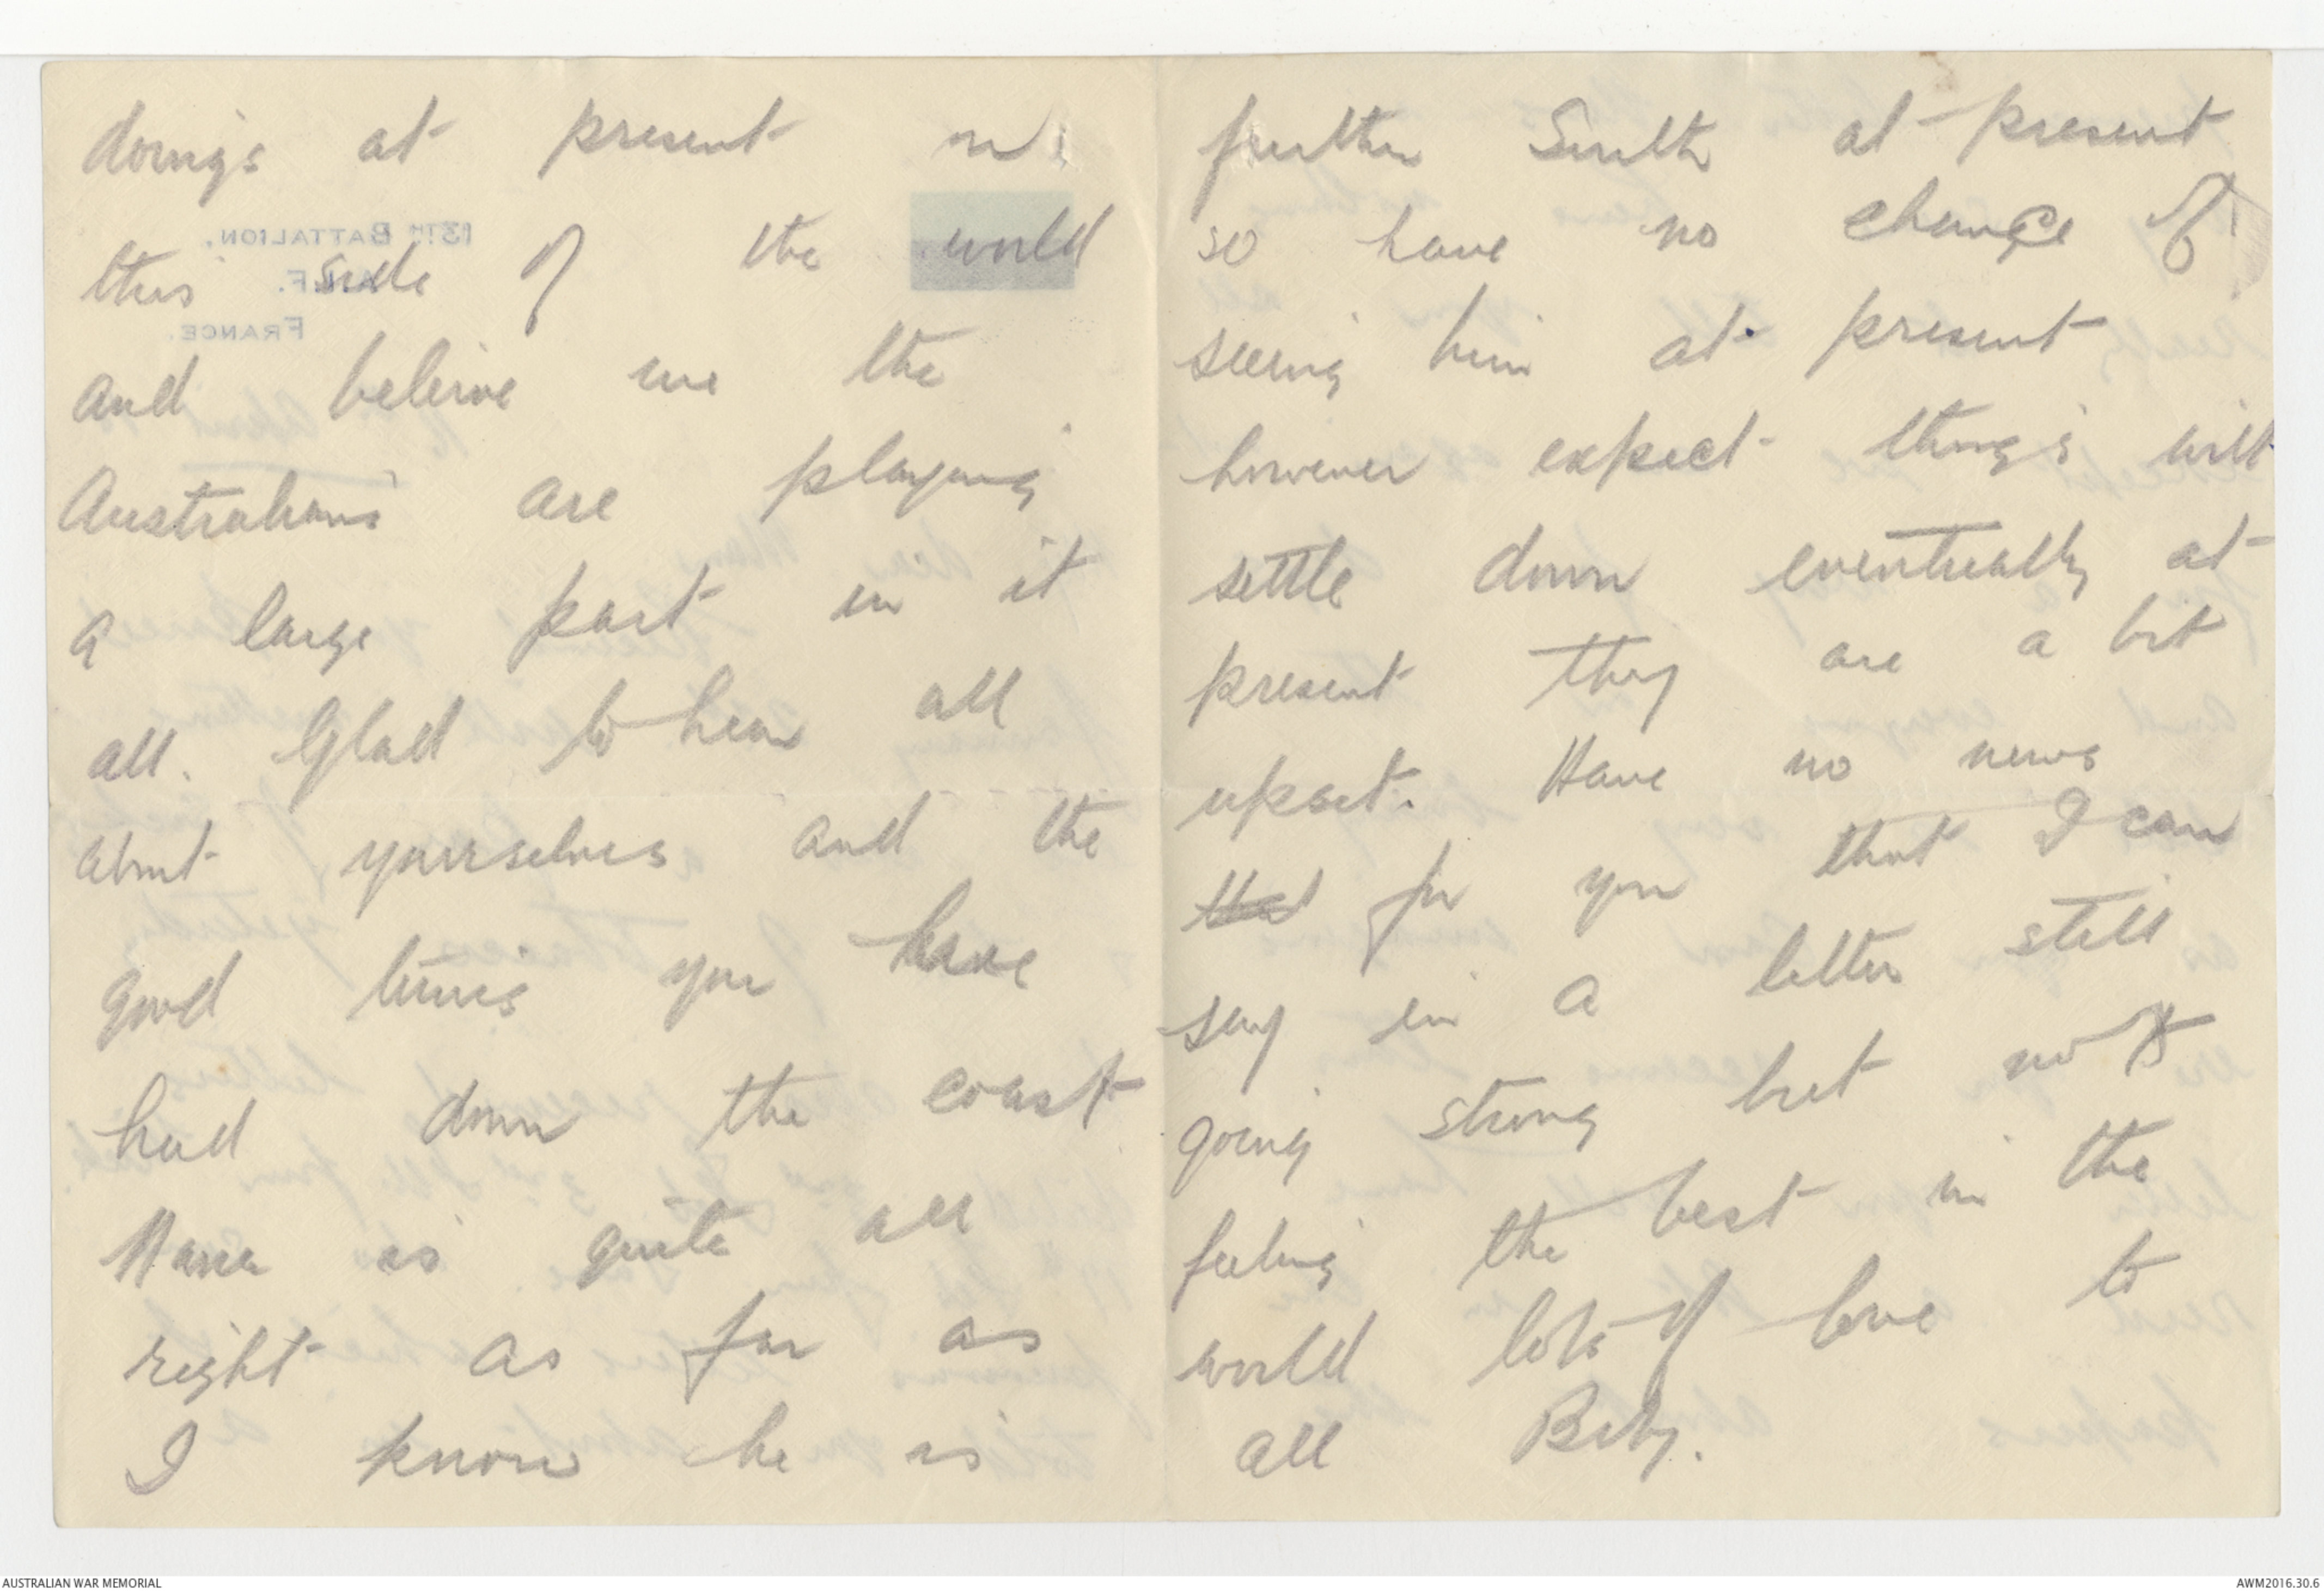 doings at present on
this side of the world
and beleive me the
Australians are playing
a large part in it
all. Glad to hear all
about yourselves and the
good times you have
had down the coast
is quite all
right as far as
I know he is
further South at present
so have no chance of
seeing him at present
however expect things will
settle down eventually at
present they are a bit
upset. Have no news
that for you that I can
say in a letter still
going strong but not
feeling the best in the
world lots of love to
all
13TH BATTALION,
A.I.F.
FRANCE.
AUSTRALIAN WAR MEMORIAL
AWM2016.30.6